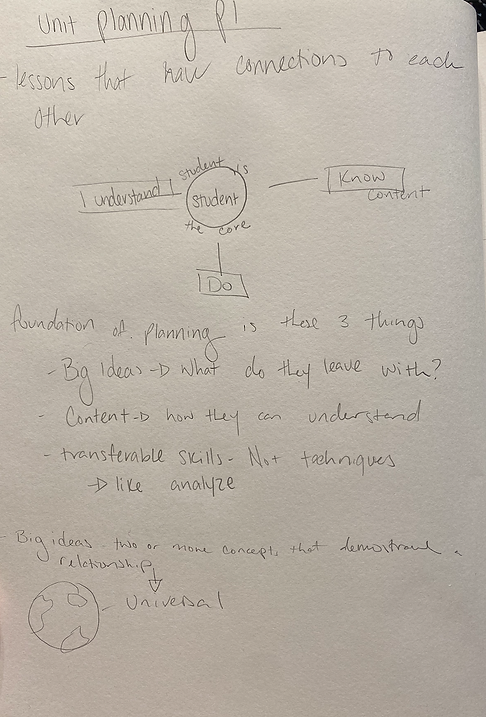 unit planning p1
- lessons that have connections to each
other
student is
| understand |
student
Know
content
the core
Do
foundation of planning is these 3 things
- Big Ideas → What do they leave with?
- Content → how they can understand
- transferable skills - Not techniques
→ like analyze
- Big ideas - two or more concepts that demostrate a
relationship
Universal